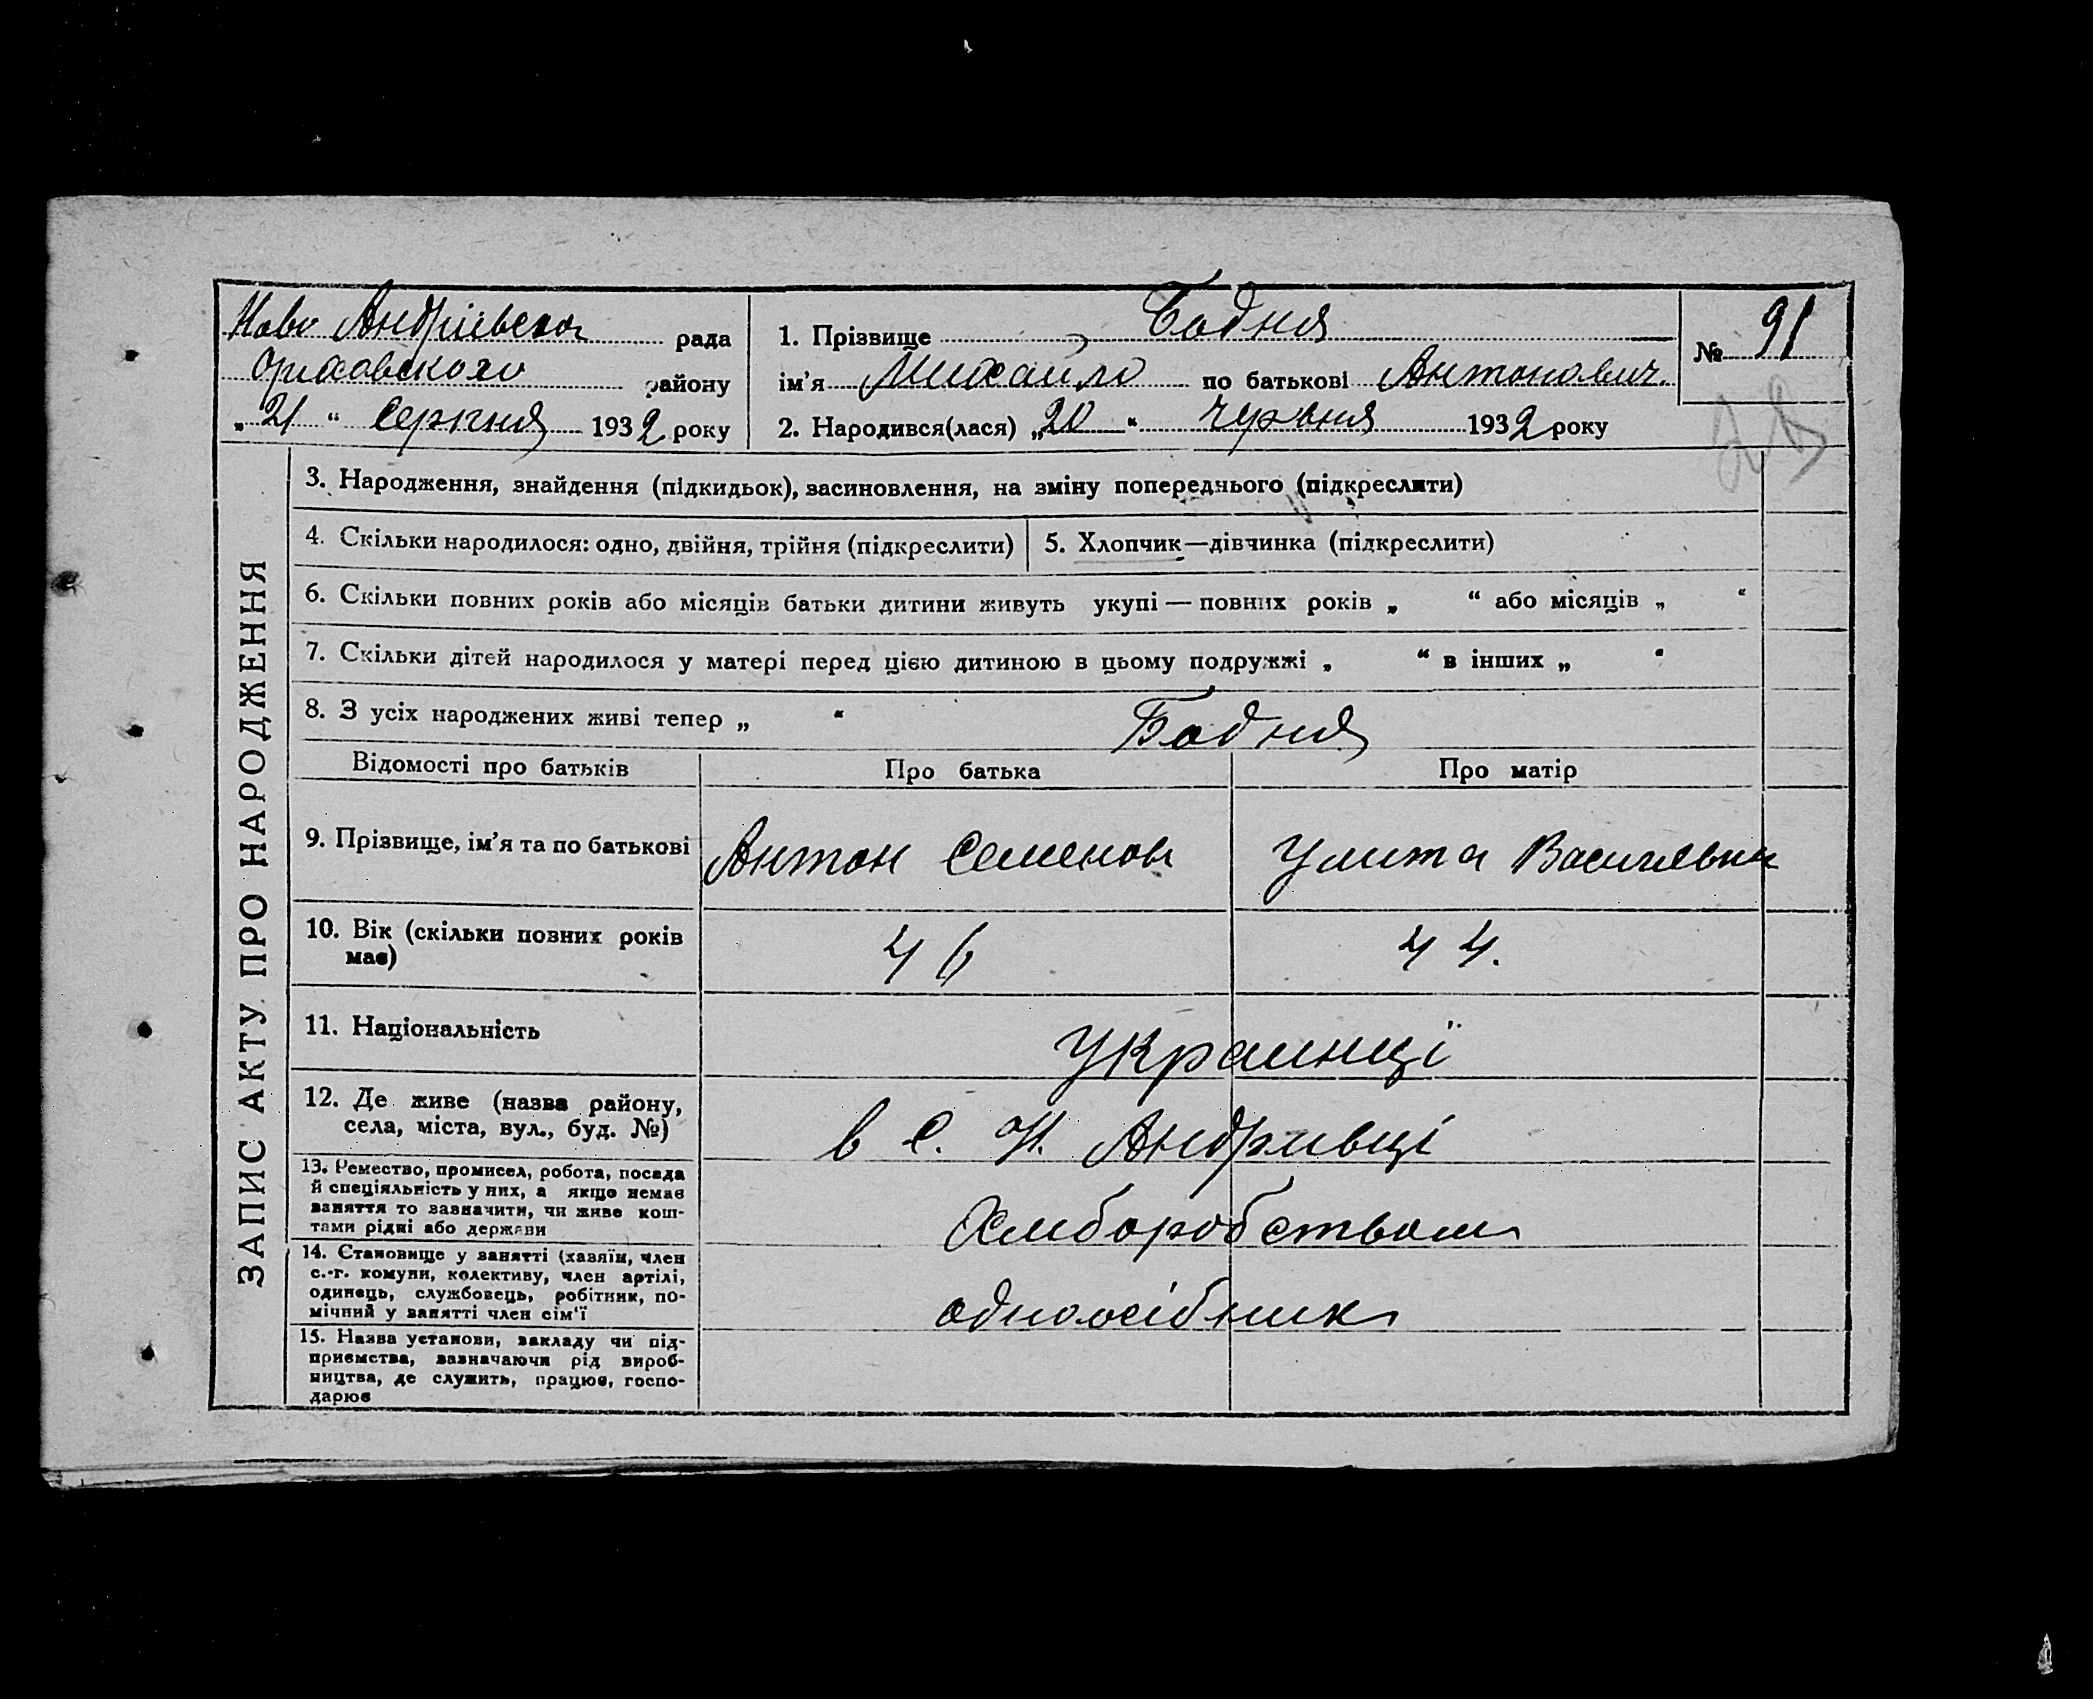 Ново Андріївська рада
району
„21“ Серпня 1932 року
1. Прізвище Бодня
ім’я Михайло по батькові Антонович.
2. Народився(лася) „20“ Червня 1932 року
№ 91
ЗАПИС АКТУ ПРО НАРОДЖЕННЯ
3. Народження, знайдення (підкидьок), засиновлення, на зміну попереднього (підкреслити)
4. Скільки народилося: одно, двійня, трійня (підкреслити)
5. Хлопчик—дівчинка (підкреслити)
6. Скільки повних років або місяців батьки дитини живуть укупі — повних років „ “ або місяців „ “
7. Скільки дітей народилося у матері перед цією дитиною в цьому подружжі „ “ в інших „ “
8. З усіх народжених живі тепер „ “
Бодня
Відомості про батьків
Про батька
Про матір
9. Прізвище, ім’я та по батькові
Антон Семенов
Улита Васильвна
10. Вік (скільки повних років
має)
46
44.
11. Національність
Украинці
12. Де живе (назва району,
села, міста, вул., буд. №)
в с. Н. Андривці
13. Ремество, промисел, робота, посада
й спеціяльність у них, а якщо немає
заняття то зазначити, чи живе кош-
тами рідні або держави
Хлиборобством
14. Становище у занятті (хазяїн, член
с.-г. комуни, колективу, член артілі,
одинець, службовець, робітник, по-
мічний у занятті член сім’ї
одноосібник
15. Назва установи, закладу чи під-
приємства, зазначаючи рід вироб-
ництва, де служить, працює, госпо-
дарює